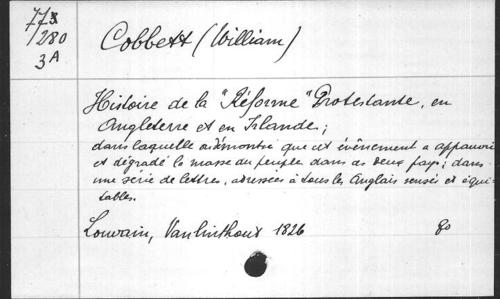 773
/280
3A
Cobbett (William)
Histoire de la "Réforme" Protestante, en
Angleterre et en Islande;
dans laquelle est démontré que cet évènement a appauvri
et dégradé la masse du peuple dans ces deux pays; dans
une série de lettres, adressées à tous les Anglais sensés et équi-
tables.
Louvain, Vanlinthout 1826